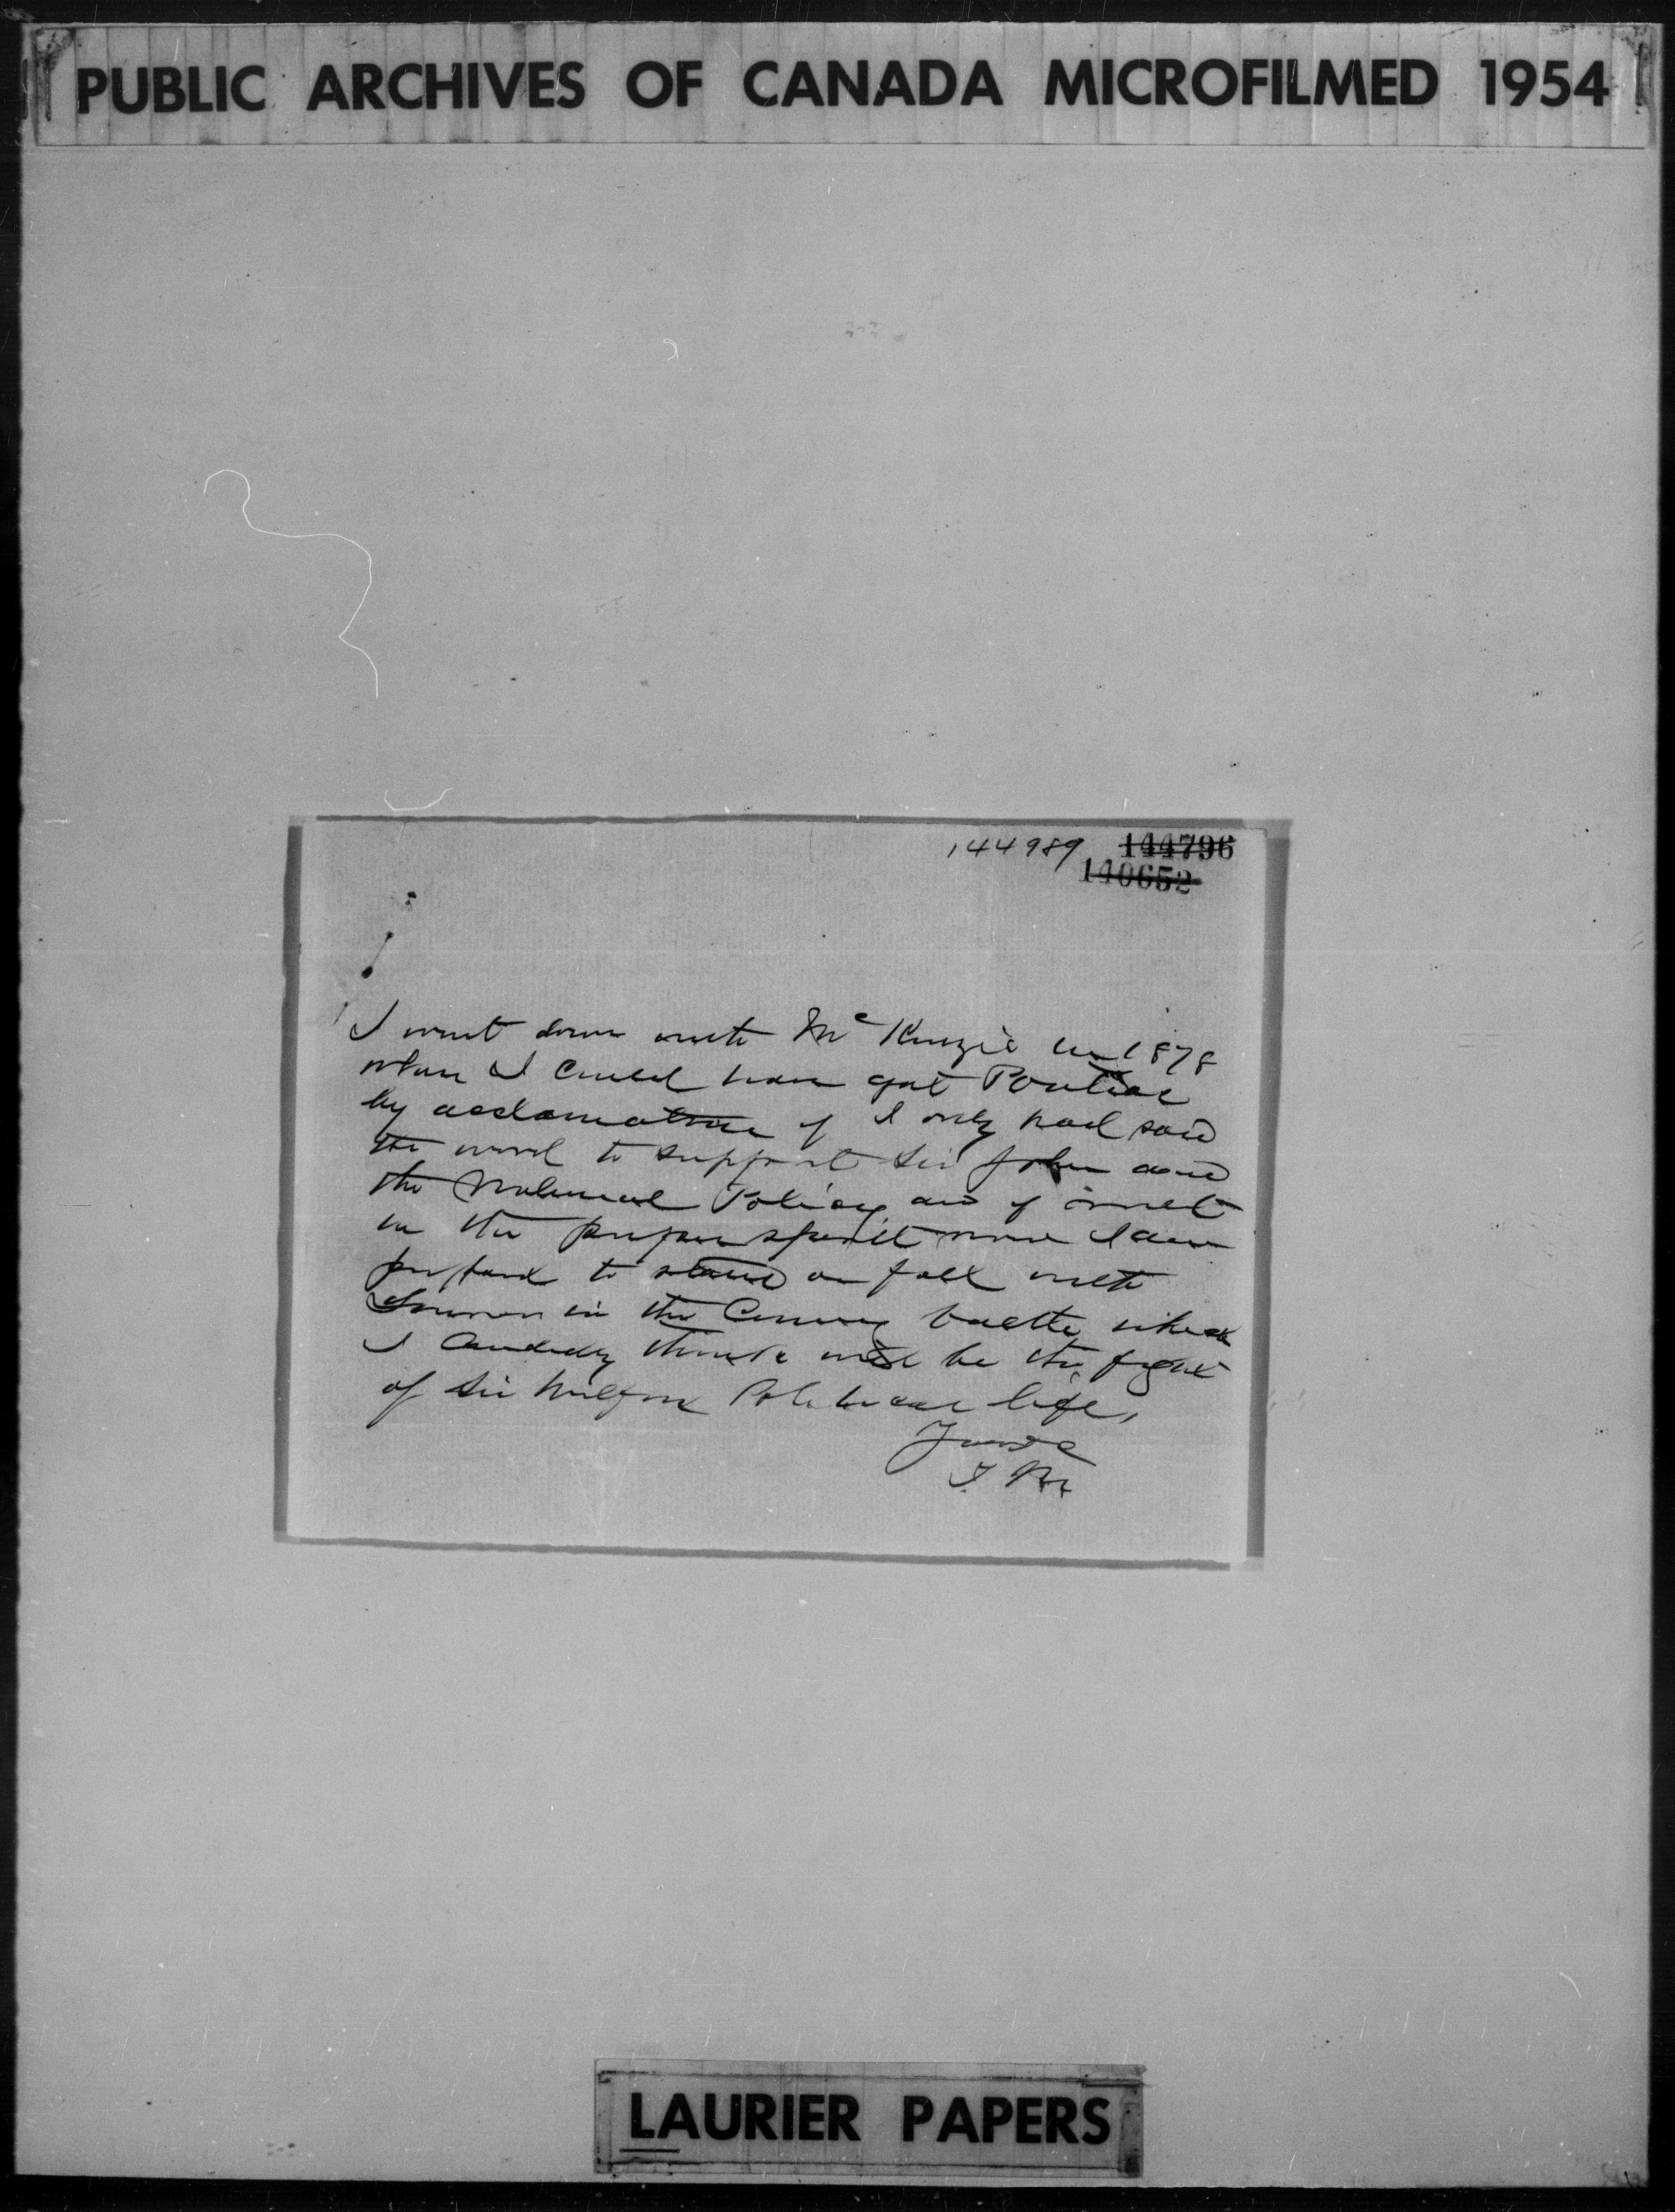 PUBLIC ARCHIVES OF CANADA MICROFILMED 1954
144989 144796
140652
I went down with McKenzie in 1878
when I could have got Pontiac
by acclamation if I only had said
the word to support Sir John and
the National Policy and if met
in the proper spirit now I am
prepared to stand or fall with
in the Coming battle which
I Candidly think will be the fight
of Sir Wilfrid Political life,
Yours
T
LAURIER PAPERS